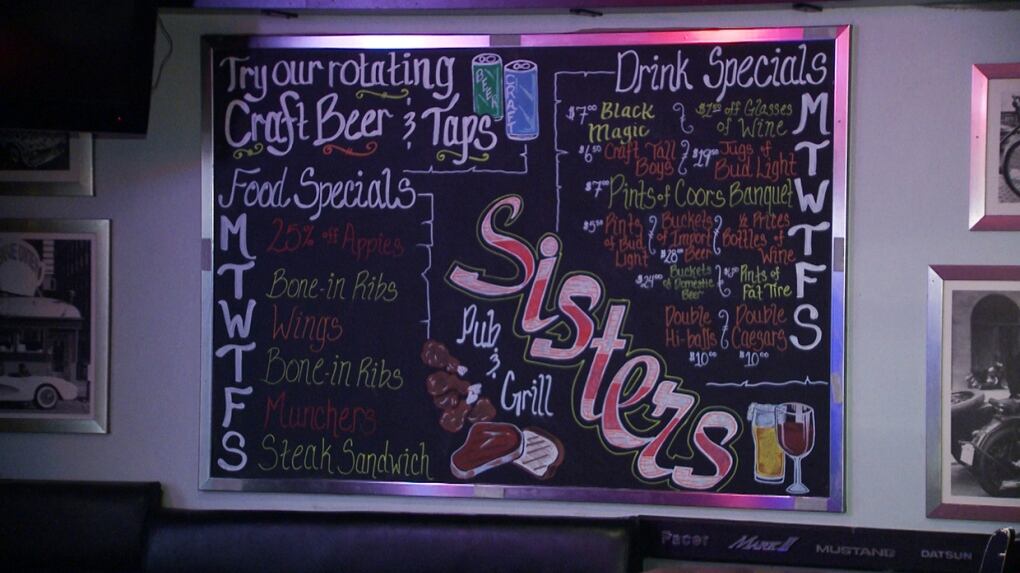 Try our rotating
Craft Beer & Taps
BEER
CRAFT
Food Specials
M 25% off Appies
T Bone-in Ribs
W Wings
T Bone-in Ribs
F Munchers
S Steak Sandwich
Sisters
Pub
&
Grill
Drink Specials
M $7.00 Black Magic
off Glasses of Wine
T $6.50 Craft Tall Boys
$19.00 Jugs of Bud Light
W $7.00 Pints of Coors Banquet
T $5.50 Pints of Bud Light
Buckets of Import Beer $28.00
½ Prices Bottles of Wine
F $24.00 Buckets of Domestic Beer
Pints of Fat Tire
S Double Hi-balls $10.00
Double Caesars $10.00
Pacer MARK II MUSTANG DATSUN